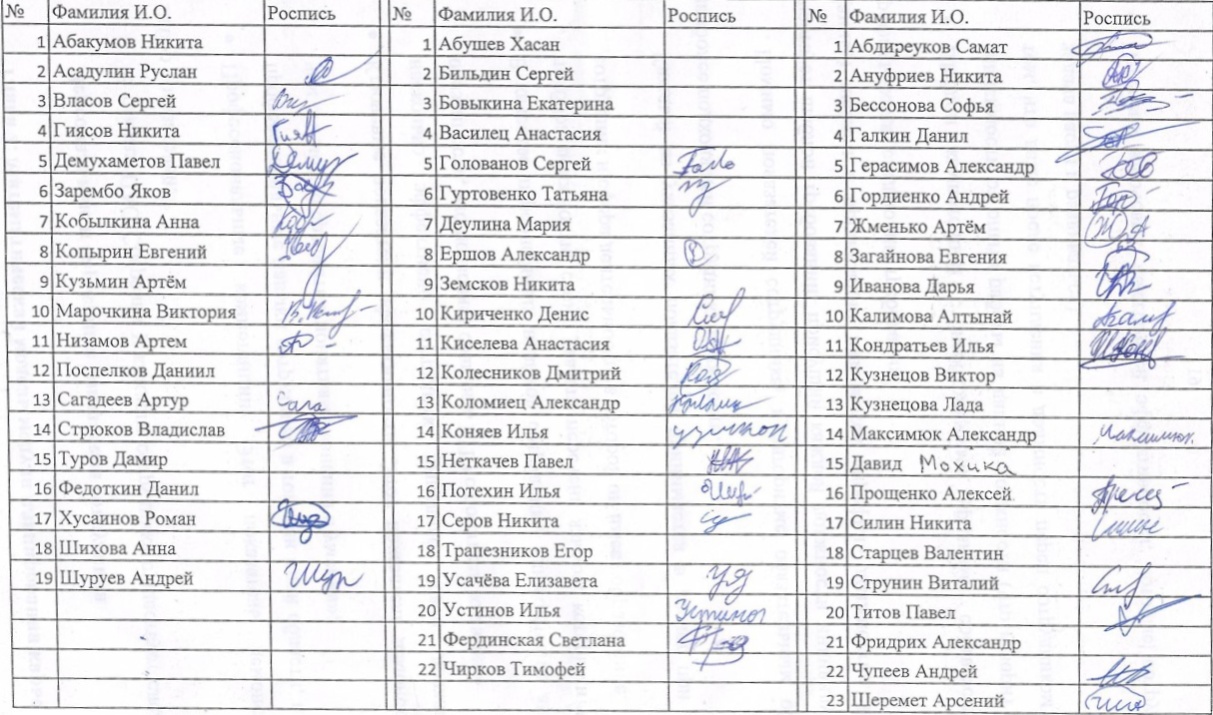 № Фамилия И.О. Роспись № Фамилия И.О. Роспись № Фамилия И.О. Роспись
1 Абакумов Никита 1 Абушев Хасан 1 Абдиреуков Самат
2 Асадулин Руслан 2 Бильдин Сергей 2 Ануфриев Никита
3 Власов Сергей 3 Бовыкина Екатерина 3 Бессонова Софья
4 Гиясов Никита 4 Василец Анастасия 4 Галкин Данил
5 Демухаметов Павел 5 Голованов Сергей 5 Герасимов Александр
6 Зарембо Яков 6 Гуртовенко Татьяна 6 Гордиенко Андрей
7 Кобылкина Анна 7 Деулина Мария 7 Жменько Артём
8 Копырин Евгений 8 Ершов Александр 8 Загайнова Евгения
9 Кузьмин Артём 9 Земсков Никита 9 Иванова Дарья
10 Марочкина Виктория 10 Кириченко Денис 10 Калимова Алтынай
11 Низамов Артем 11 Киселева Анастасия 11 Кондратьев Илья
12 Поспелков Даниил 12 Колесников Дмитрий 12 Кузнецов Виктор
13 Сагадеев Артур Сага 13 Коломиец Александр 13 Кузнецова Лада
14 Стрюков Владислав 14 Коняев Илья 14 Максимюк Александр Максимюк
15 Туров Дамир 15 Неткачев Павел 15 Давид Мохика
16 Федоткин Данил 16 Потехин Илья 16 Прощенко Алексей
17 Хусаинов Роман 17 Серов Никита 17 Силин Никита
18 Шихова Анна 18 Трапезников Егор 18 Старцев Валентин
19 Шуруев Андрей Шур 19 Усачёва Елизавета 19 Струнин Виталий
20 Устинов Илья Устинов 20 Титов Павел
21 Фердинская Светлана 21 Фридрих Александр
22 Чирков Тимофей 22 Чупеев Андрей
23 Шеремет Арсений